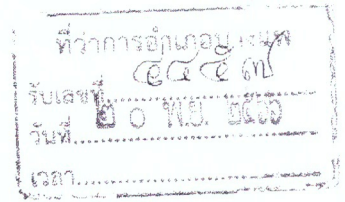 ที่ว่าการอำเภอ
รับเลขที่
วันที่ ๒๐ พ.ย. ๒๕๖๖
เวลา